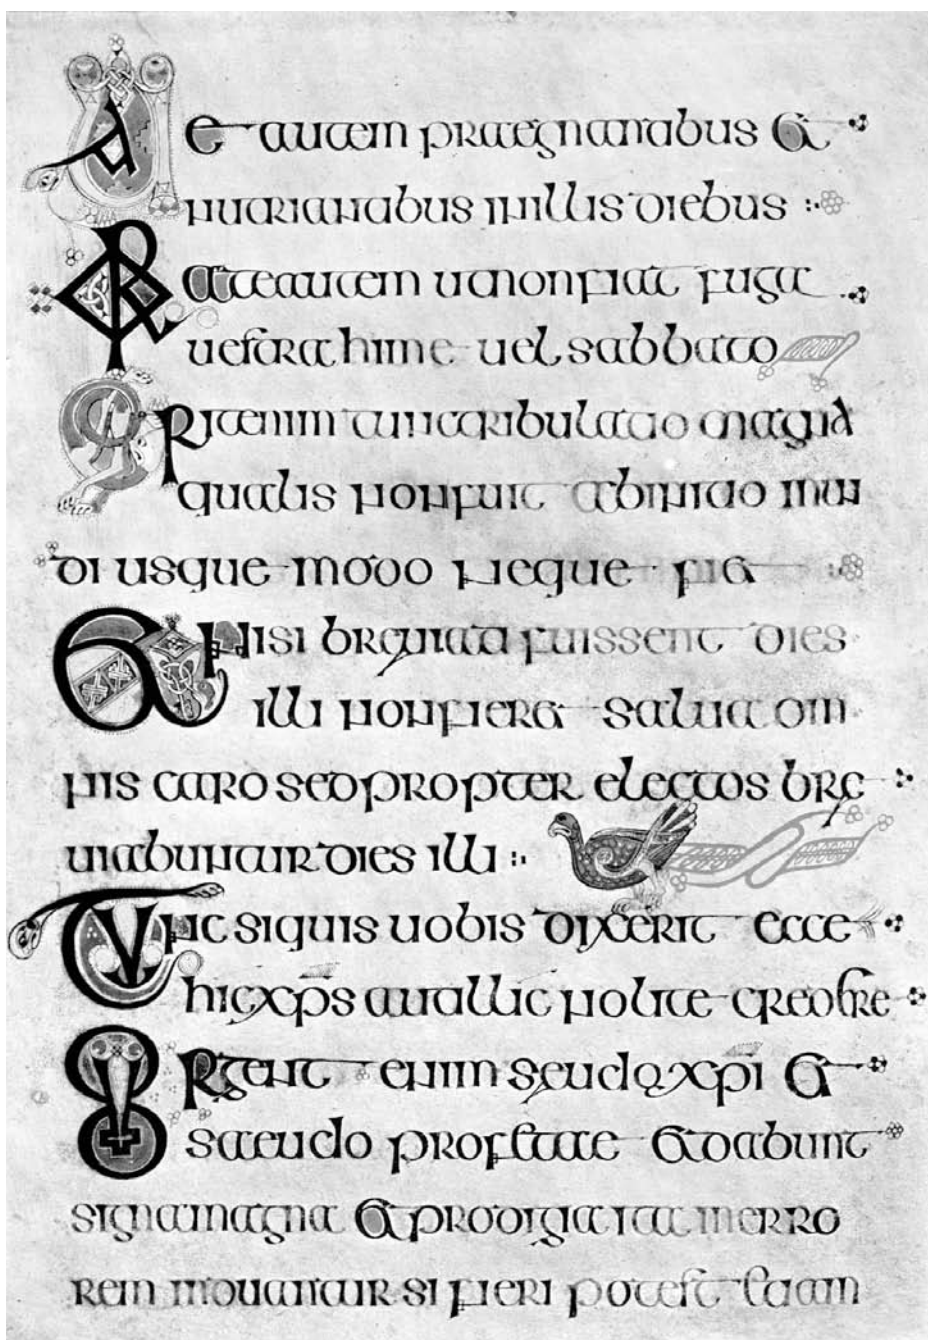 Uae autem praegnantibus et
nutriantibus inillis diebus
Orate autem utnonfiat fuga
uestra hime uel sabbato
Erit enim tunc tribulatio magna
qualis nonfuit abinitio mun
di usque modo neque fiet
Et nisi breuiati fuissent dies
illi nonfieret salua om
nis caro sed propter electos bre
uiabuntur dies illi
Tunc siquis uobis dixerit ecce
hicxps̄ autillic nolite credere
Surgent enim seudoxpī et
saeudo profetae et dabunt
signa magna et prodigia ita inerro
rem mouantur si fieri potest etiam